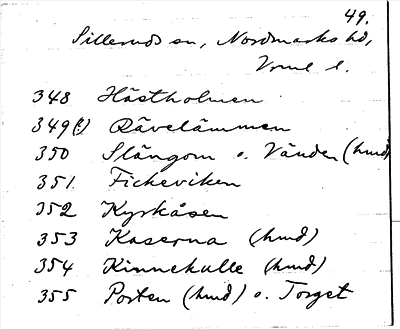 49.
Silleruds sn, Nordmarks hd,
Vrml l.
348 Hästholmen
349(!) Rävelämmen
350 Slängom o. Vänden (hmd)
351. Ficheviken
352 Kyrkåsen
353 Kaserna (hmd)
354 Kinnekulle (hmd)
355 Porten (hmd) o. Torget